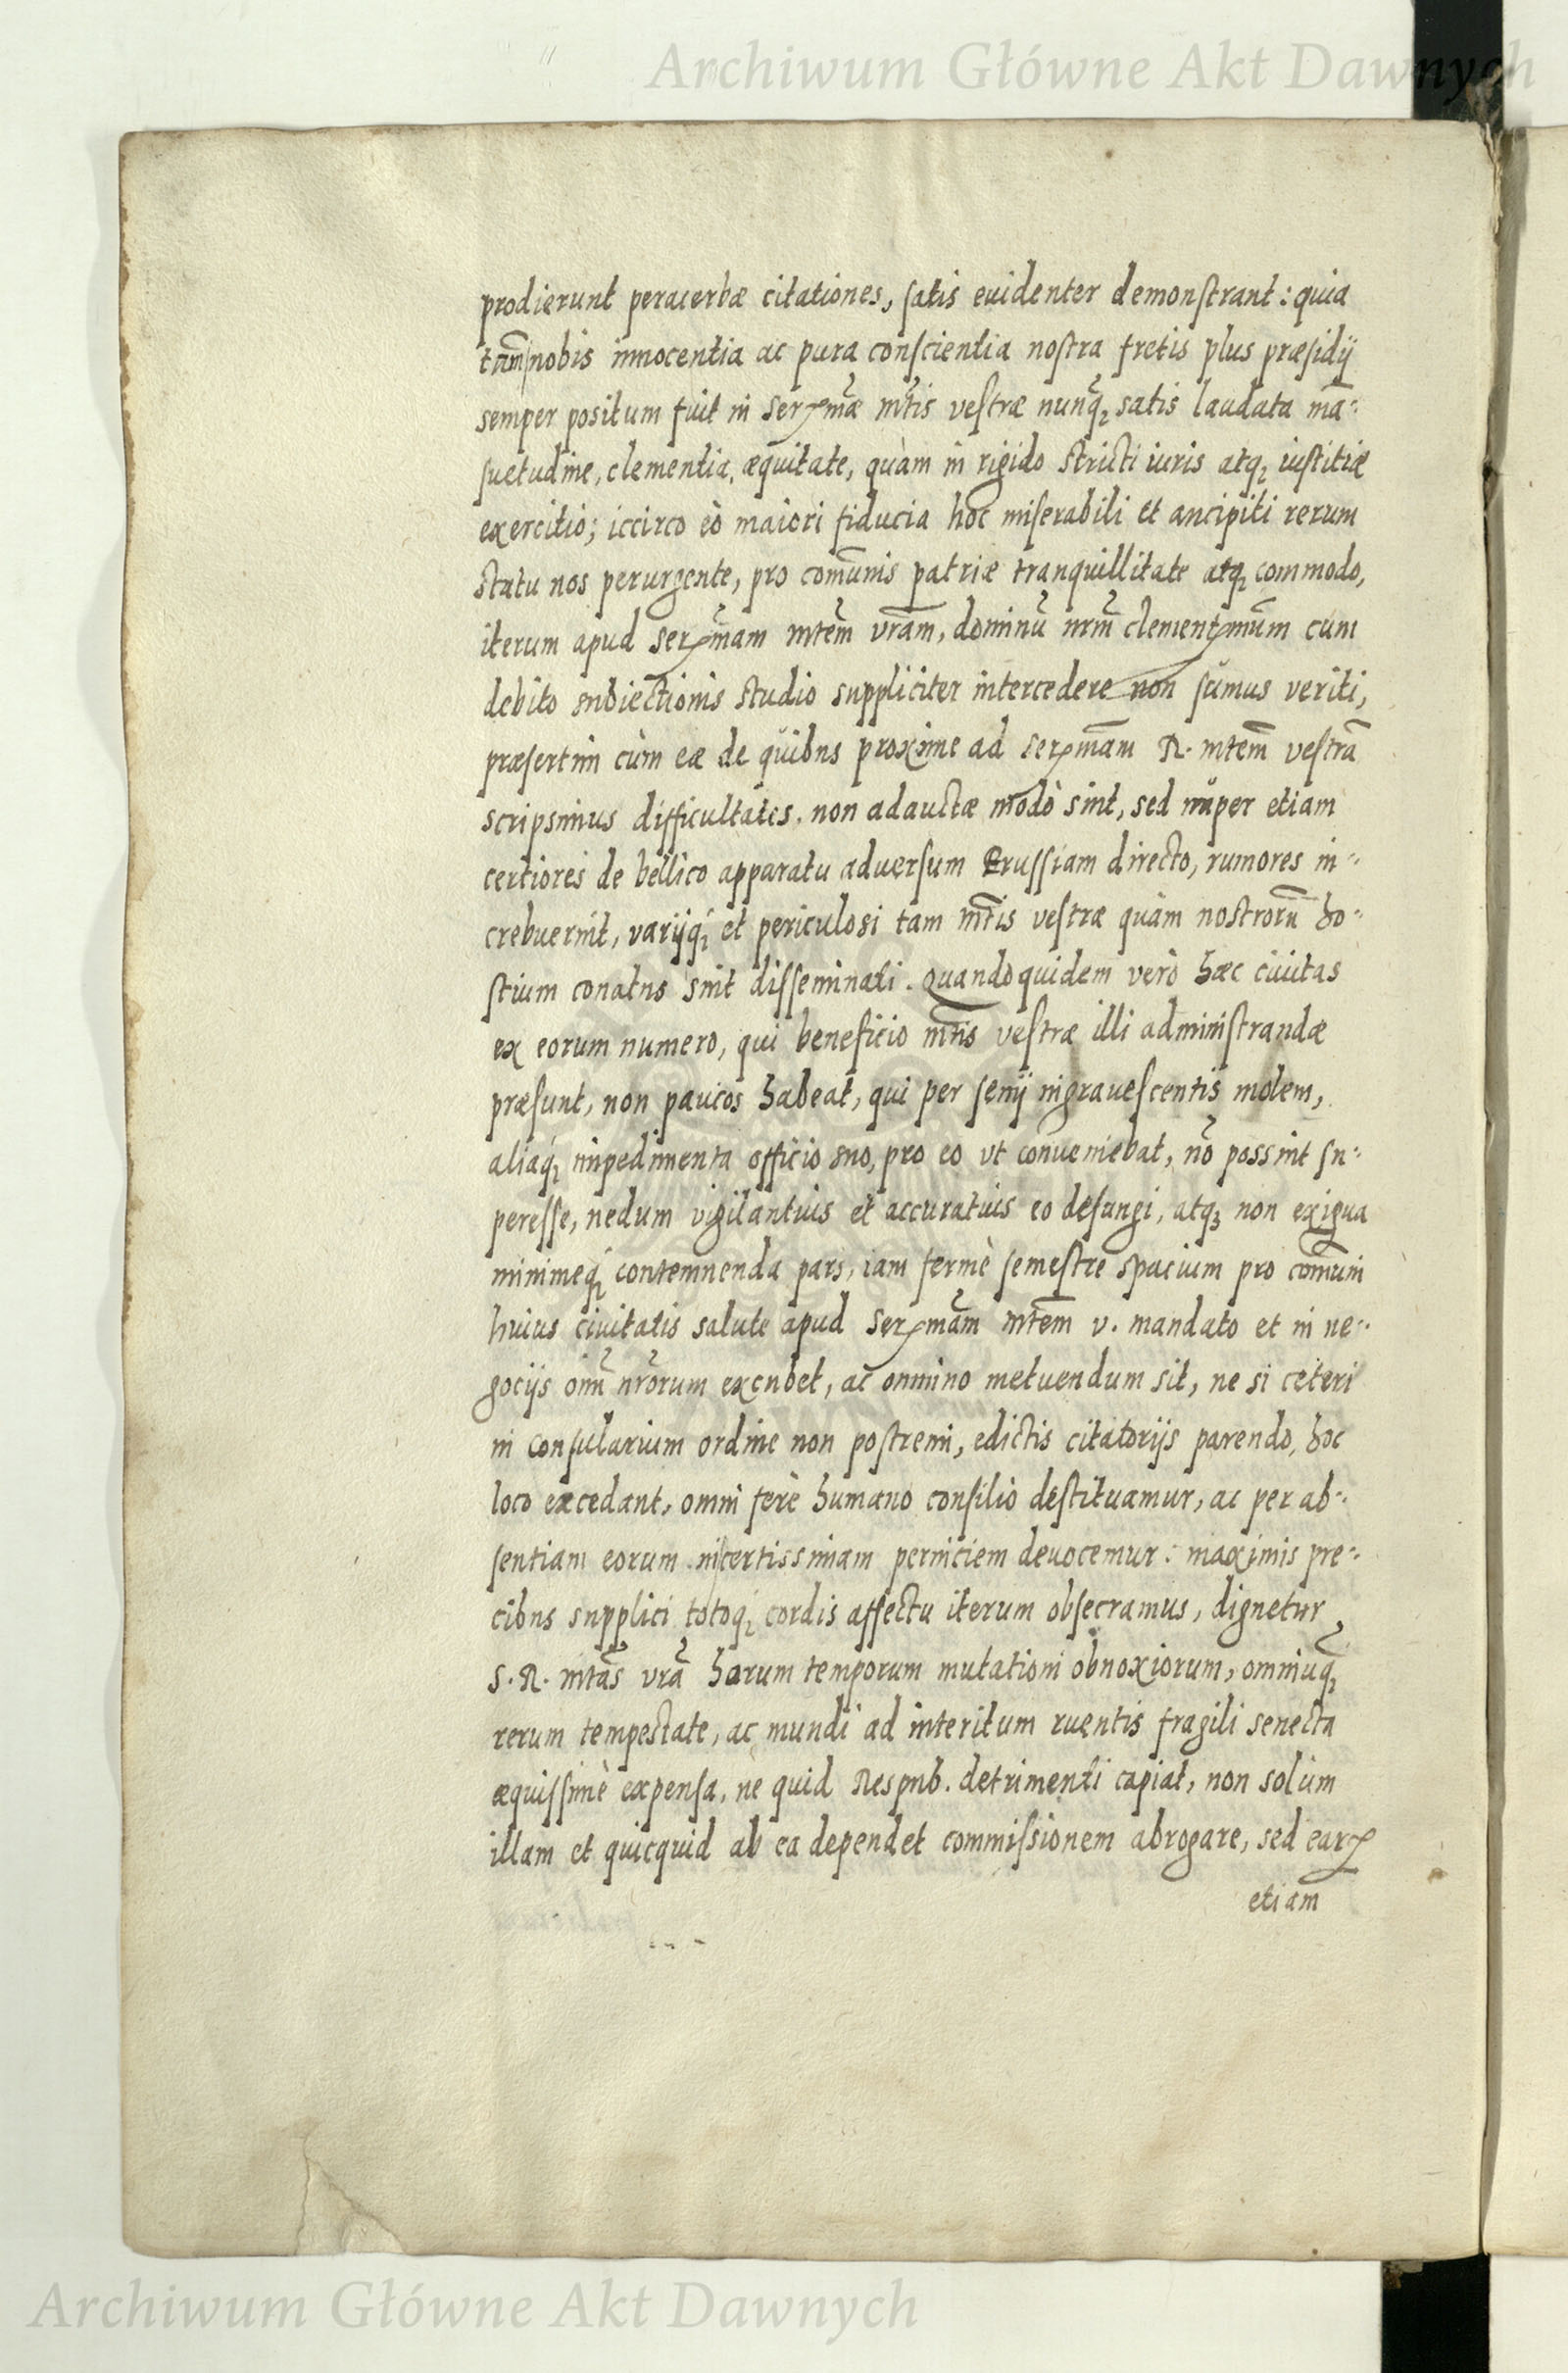 Archiwum Główne Akt Dawnych
prodierunt peracerbæ citationes, satis euidenter demonstrant: quia
tam̃ nobis innocentia ac pura conscientia nostra fretis plus præsidij
semper positum fuit in Serꝫmæ mtis vestræ nunq̃ satis laudata mã-
suetudine, clementia, æquitate, quàm in rigido stricti iuris atq; iustitiæ
exercitio; iccirco eò maiori fiducia hoc miserabili et ancipiti rerum
statu nos perurgente, pro com̃unis patriæ tranquillitate atq; commodo,
iterum apud serꝫmam mtem vram, dominũ nrm clementꝫmum cum
debito subiectionis studio suppliciter intercedere non sumus veriti,
præsertim cùm eæ de quibus proxime ad serꝫmam R. mtem vestrã
scripsimus difficultates, non adauctæ modò sint, sed nuper etiam
certiores de bellico apparatu aduersum Prussiam directo, rumores in-
crebuerint, varijq; et periculosi tam mtis vestræ quàm nostrorũ ho-
stium conatus sint disseminati. Quandoquidem verò hæc ciuitas
ex eorum numero, qui beneficio mtis vestræ illi administrandæ
præsunt, non paucos habeat, qui per senij ingrauescentis molem,
aliaq; impedimenta officio suo, pro eo vt conueniebat, nõ possint su-
peresse, nedum vigilantius et accuratius eo defungi, atq; non exigua
minimeq; contemnenda pars, iam fermè semestre spacium pro com̃uni
huius ciuitatis salute apud Serꝫmam mtem v. mandato et in ne-
gocijs om̃ nrorum excubet, ac omnino metuendum sit, ne si ceteri
in consularium ordine non postremi, edictis citatorijs parendo, hoc
loco excedant, omni ferè humano consilio destituamur, ac per ab-
sentiam eorum in certissimam perniciem deuocemur: maximis pre-
cibus supplici totoq; cordis affectu iterum obsecramus, dignetur
S. R. mtas vra harum temporum mutationi obnoxiorum, omniuq̃;
rerum tempestate, ac mundi ad interitum ruentis fragili senecta
æquissimè expensa, ne quid Respub. detrimenti capiat, non solum
illam et quicquid ab ea dependet commissionem abrogare, sed earꝫ
etiam
Archiwum Główne Akt Dawnych